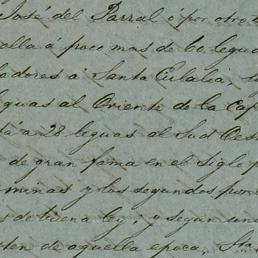 José del Parral ó por otro
ella á poco mas de 60 legu
dores á Santa Eulalia,
eguas al Oriente de la Cap
tá á 28 leguas al Sud Oes
de gran fama en el siglo p
minas y los segundos por
s de buena ley, y segun un
ten de aquella epoca, Sta